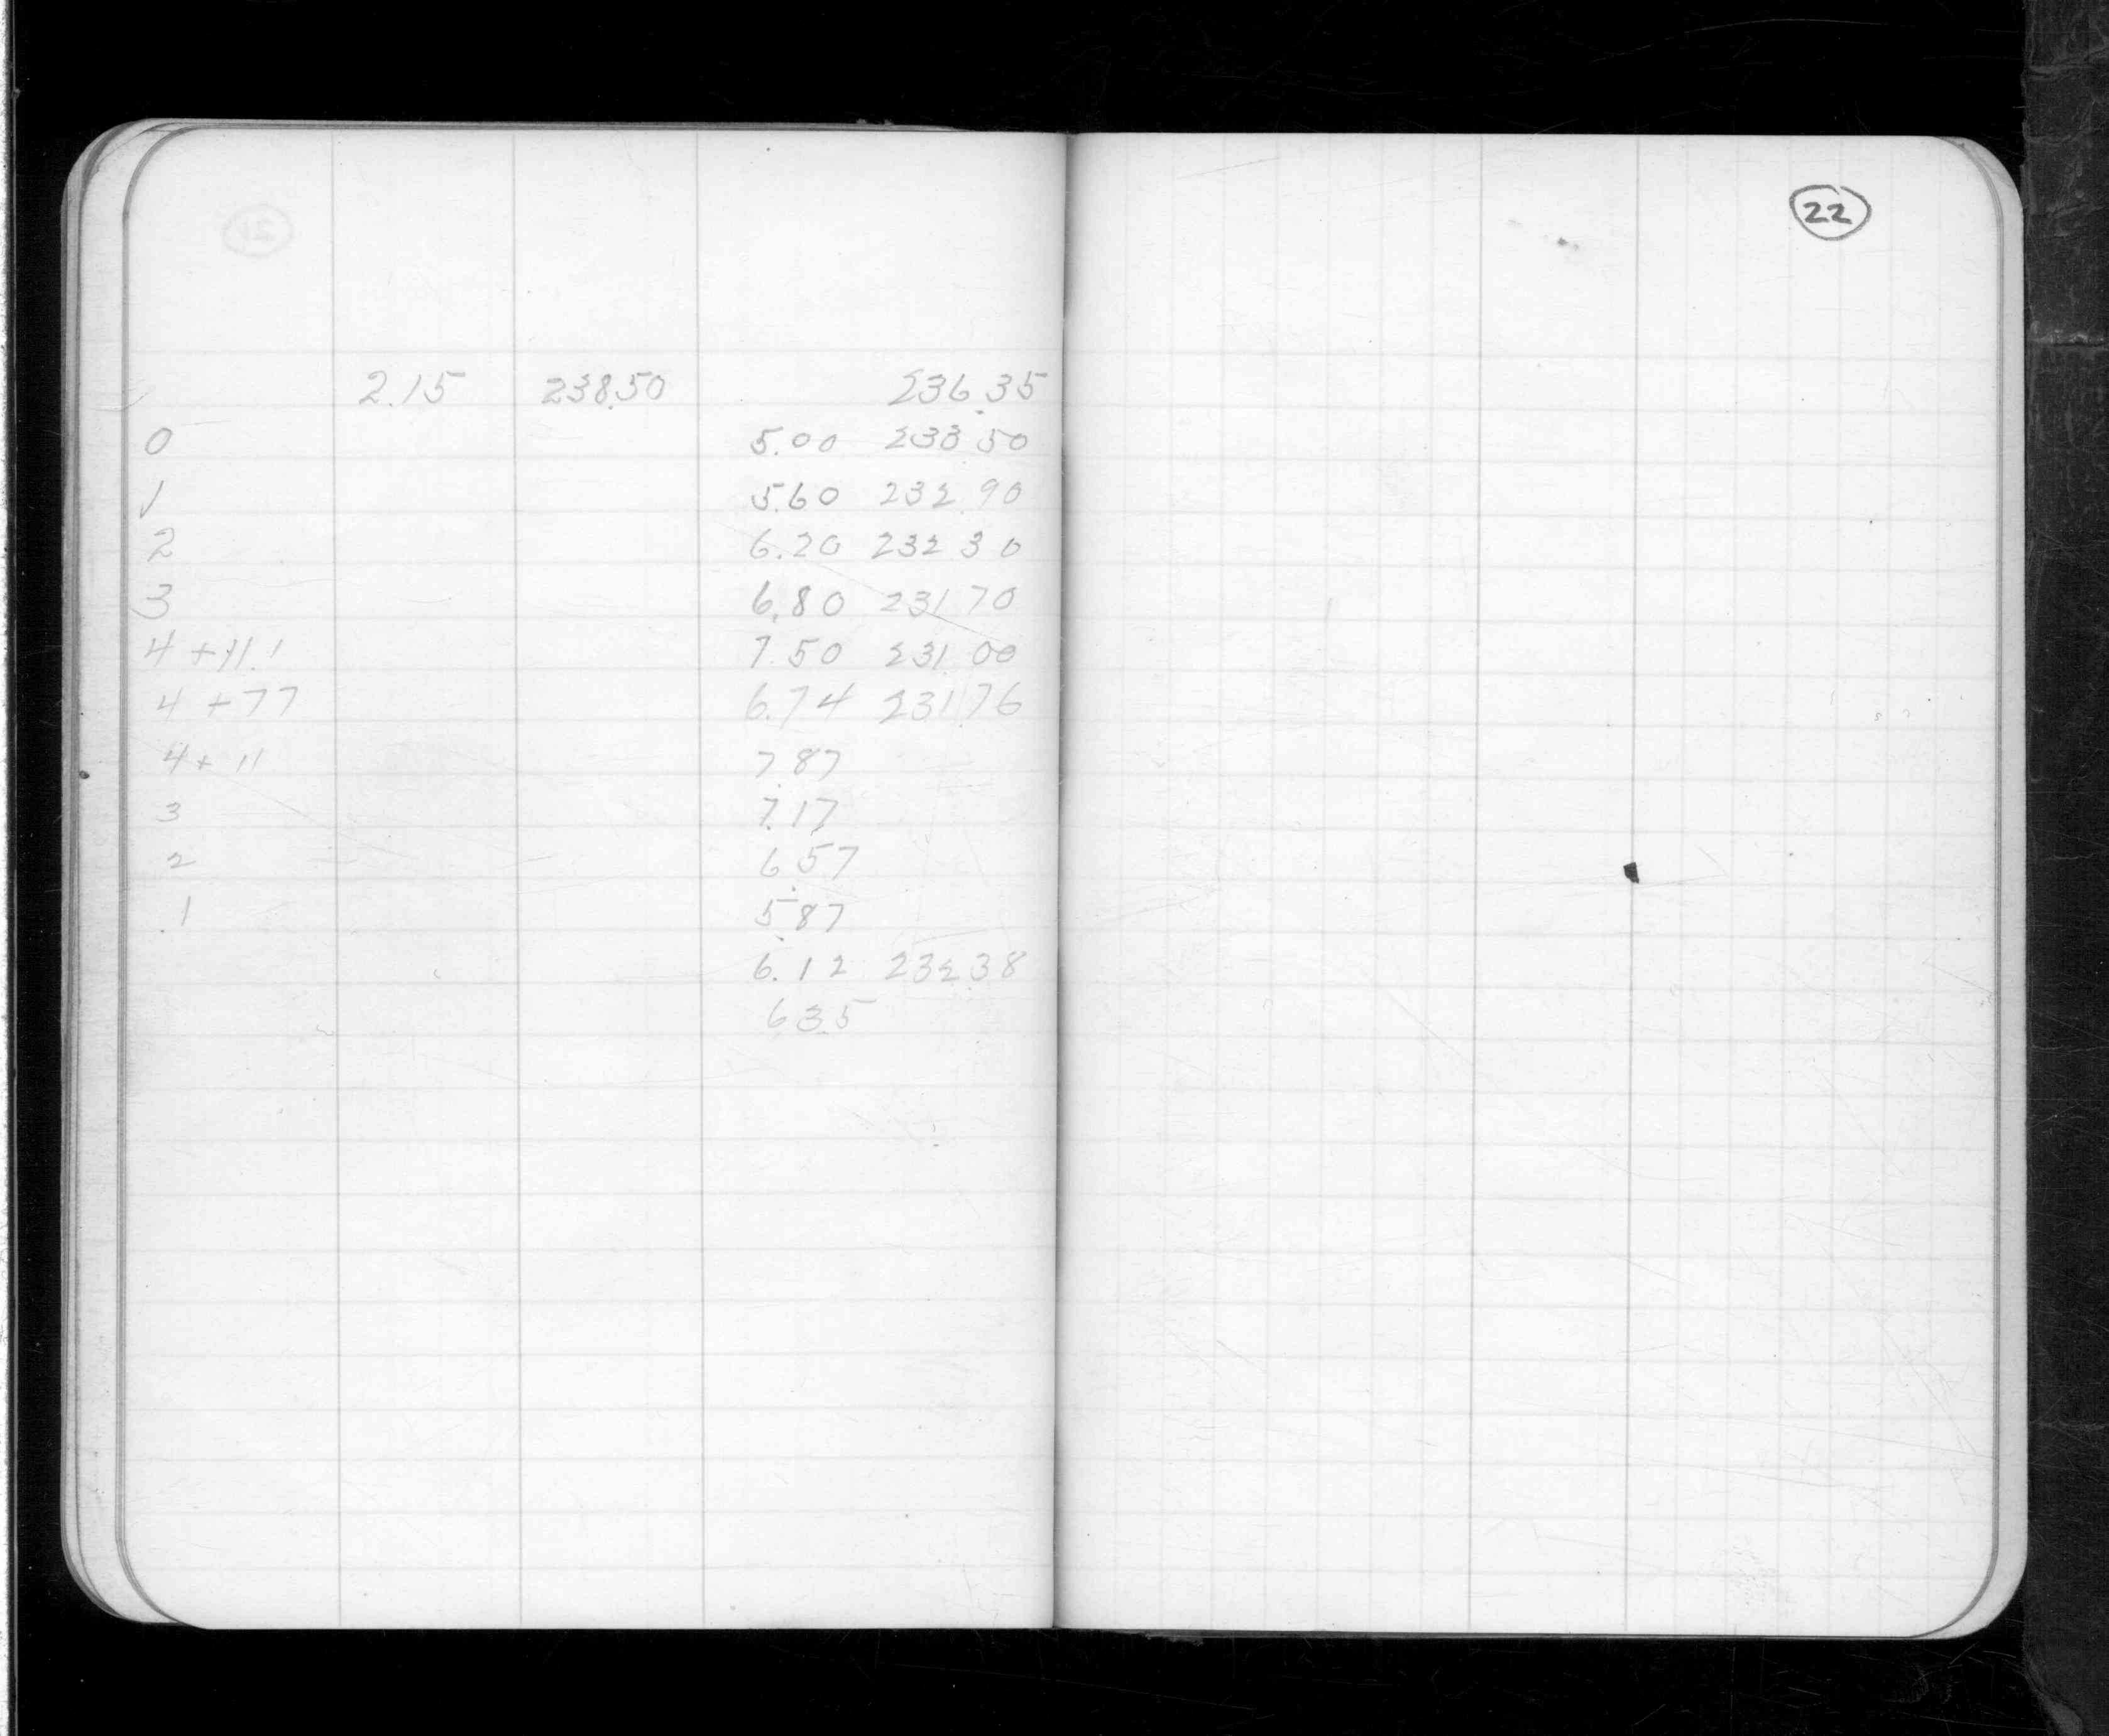 22
2.15 238.50 236.35
0 5.00 233.50
1 5.60 232.90
2 6.20 232 30
3 6.80 231 70
4 +11.1 7.50 231.00
4 +77 6.74 231.76
4+ 11 7.87
3 7.17
2 6.57
1 5.87
6.12 232.38
6 3.5